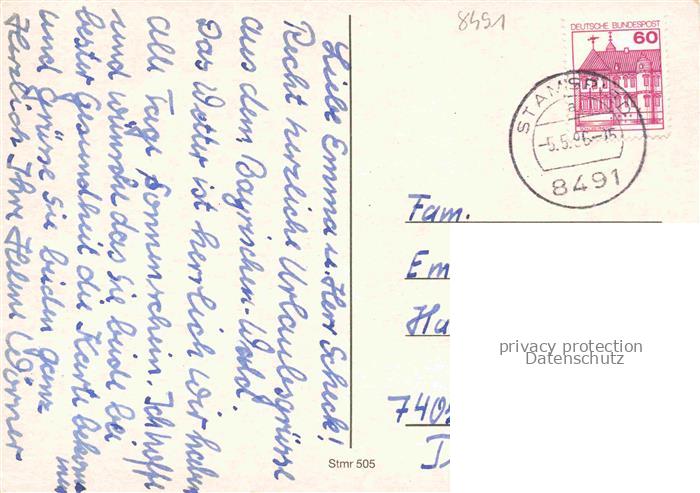 Liebe Emma u. Herr Scheck!
Recht herzliche Urlaubsgrüsse
aus dem Bayrischen-Wald.
Das Wetter ist herrlich wir haben
alle Tage Sonnenschein. Ich hoffe
und wünsche das Sie beide bei
bester Gesundheit die Karte bekom
men
und Grüsse Sie beiden ganz
Herzlich Ihre Helene Wörner
8491
DEUTSCHE BUNDESPOST
60
STAMSRIED
a
-5.5.86-15
8491
Fam.
Em
Ha
740
privacy protection
Datenschutz
Stmr 505